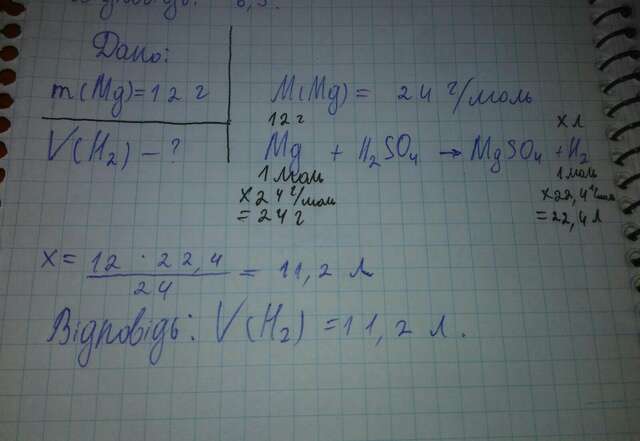 Відповідь: 6,5.
Дано:
m(Mg)=12 г
V(H₂) – ?
M(Mg) = 24 г/моль
12 г
x л
Mg + H₂SO₄ → MgSO₄ + H₂
1 моль
1 моль
x 24 г/моль
x 22,4 л/моль
= 24 г
= 22,4 л
x = 12 · 22,4 / 24 = 11,2 л
Відповідь: V(H₂) = 11,2 л.